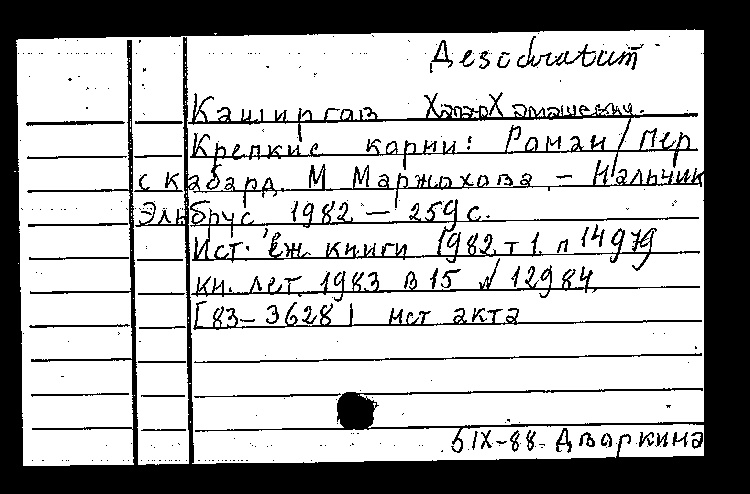 Desidiratum
Каширгов Хапэо Хамашевич.
Крепкие корни: Роман / Пер
с кабард. М Маржохова. – Нальчик
Эльбрус, 1982 – 259 с.
Ист. еж. книги 1982 т 1. п 14979
кн. лет. 1983 в 15 № 12984.
[83–3628] ист акта
5 IX-88. Дворкина